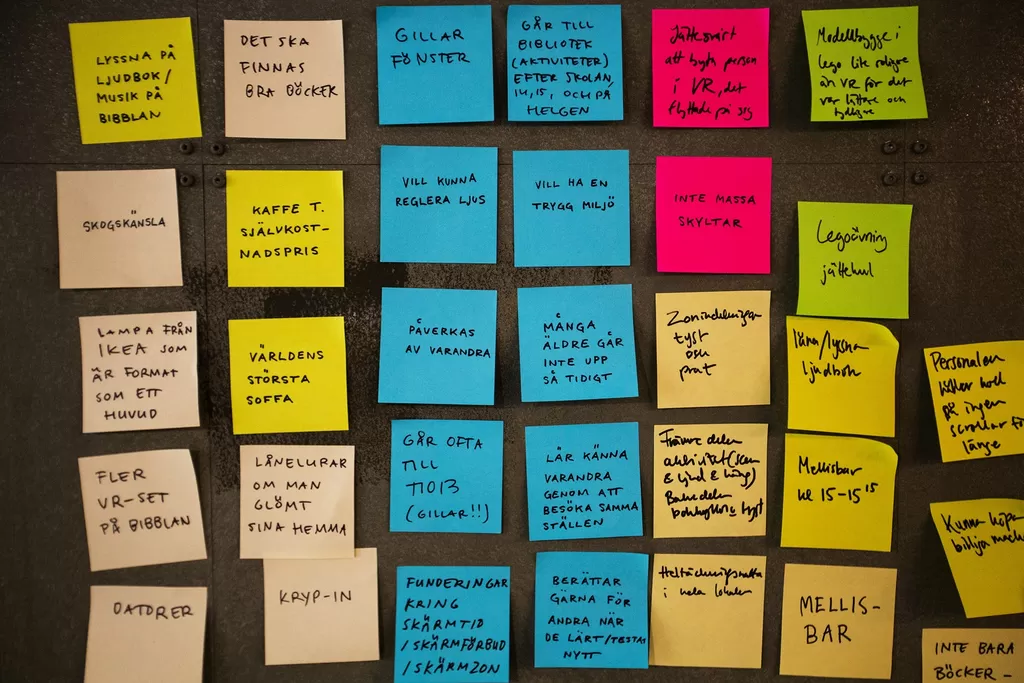 LYSSNA PÅ
LJUDBOK/
MUSIK PÅ
BIBBLAN
DET SKA
FINNAS
BRA BÖCKER
GILLAR
FÖNSTER
GÅR TILL
BIBLIOTEK
(AKTIVITETER)
EFTER SKOLAN,
14,15, OCH PÅ
HELGEN
Jättesvårt
att byta person
i VR, det
flyttade på sig
Modellbygge i
lego lite roligare
än VR för det
var lättare och
tydligare
SKOGSKÄNSLA
KAFFE T.
SJÄLVKOST-
NADSPRIS
VILL KUNNA
REGLERA LJUS
VILL HA EN
TRYGG MILJÖ
INTE MASSA
SKYLTAR
Legoövning
jättekul
LAMPA FRÅN
IKEA SOM
ÄR FORMAT
SOM ETT
HUVUD
VÄRLDENS
STÖRSTA
SOFFA
PÅVERKAS
AV VARANDRA
MÅNGA
ÄLDRE GÅR
INTE UPP
SÅ TIDIGT
Zonindelningen
tyst
och
prat
låna/lyssna
ljudbok
Personalen
håller koll
på ingen
scrollar för
länge
FLER
VR-SET
PÅ BIBBLAN
LÅNELURAR
OM MAN
GLÖMT
SINA HEMMA
GÅR OFTA
TILL
TIO13
(GILLAR!!)
LÄR KÄNNA
VARANDRA
GENOM ATT
BESÖKA SAMMA
STÄLLEN
Främre delen
aktivitet (scen
& ljud & häng)
Bakre delen
bokhyllor & tyst
Mellisbar
kl 15-15 15
Kunna köpa
billiga
DATORER
KRYP-IN
FUNDERINGAR
KRING
SKÄRMTID
/SKÄRMFÖRBUD
/SKÄRMZON
BERÄTTAR
GÄRNA FÖR
ANDRA NÄR
DE LÄRT/TESTAT
NYTT
Heltäckningsmatta
i hela lokalen
MELLIS-
BAR
INTE BARA
BÖCKER -